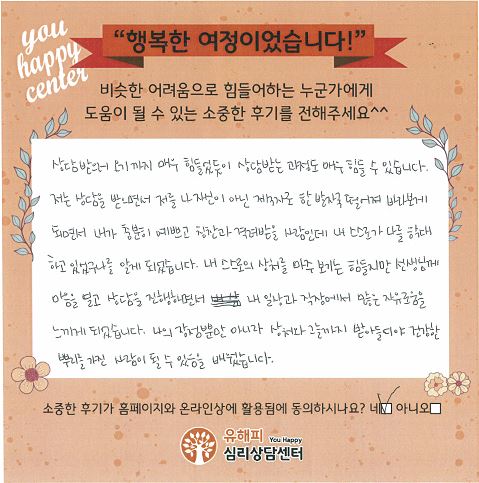 you
happy
center
“행복한 여정이었습니다!”
비슷한 어려움으로 힘들어하는 누군가에게
도움이 될 수 있는 소중한 후기를 전해주세요^^
상담받으러 오기까지 매우 힘들었듯이 상담받는 과정도 매우 힘들 수 있습니다.
저는 상담을 받으면서 저를 나 자신이 아닌 제3자로 한 발자국 떨어져 바라보게
되면서 내가 충분히 예쁘고 칭찬과 격려받을 사람인데 내 스스로가 나를 학대
하고 있었구나를 알게 되었습니다. 내 스스로의 상처를 마주 보기는 힘들지만 선생님께
마음을 열고 상담을 진행하면서 내 일상과 직장에서 많은 자유로움을
느끼게 되었습니다. 나의 강점뿐만 아니라 상처와 그늘까지 받아들여야 건강한
뿌리를 가진 사람이 될 수 있음을 배웠습니다.
소중한 후기가 홈페이지와 온라인상에 활용됨에 동의하시나요? 네 아니오
유해피 You Happy
심리상담센터